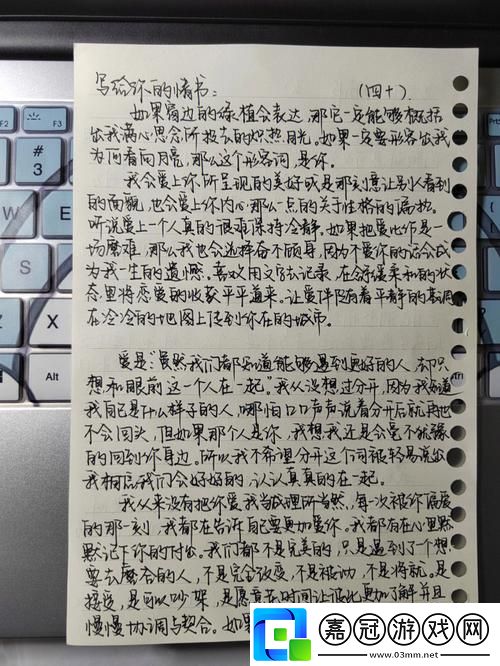 写给你的情书： （四十）
如果窗边的绿植会表达，那它一定能够概括
出我满心思念所投去的炽热目光。如果一定要形容出我
为何看向月亮，那么这个形容词，是你。
我会爱上你所呈现的美好或是那刻意让别人看到
的面貌，也会爱上你内心那么一点的关于性格的偏执。
听说爱上一个人真的很难保持冷静。如果把爱比作是一
场磨难，那么我也会选择奋不顾身，因为不爱你的话会成
为我一生的遗憾。喜欢用文字去记录，在舒缓柔和的状
态里将恋爱的收获平平道来。让爱伴随着平静的基调
在冷冷的地图上传到你在的城市。
爱是：“虽然我们都知道能够遇到更好的人，却只
想和眼前这一个人在一起。”我从没想过分开，因为我知道
我自己是什么样子的人，哪怕口口声声说着分开后就再也
不会回头，但如果那个人是你，我想我还是会毫不犹豫
的回到你身边。所以我不希望分开这个词被轻易说出
我相信我们会好好的，认认真真的在一起。
我从来没有把你爱我当成理所当然，每一次被你偏爱
的那一刻，我都在告诉自己要更加爱你。我都有在心里默
默记下你的付出。我们都不是完美的，只是遇到了个想
要去磨合的人，不是完全改变，不是被动，不是将就。是
接受，是可以吵架，是愿意花时间让彼此更加了解并且
慢慢协调与契合。如果
嘉冠游戏网
www.03mm.net
F2
F3
#
3